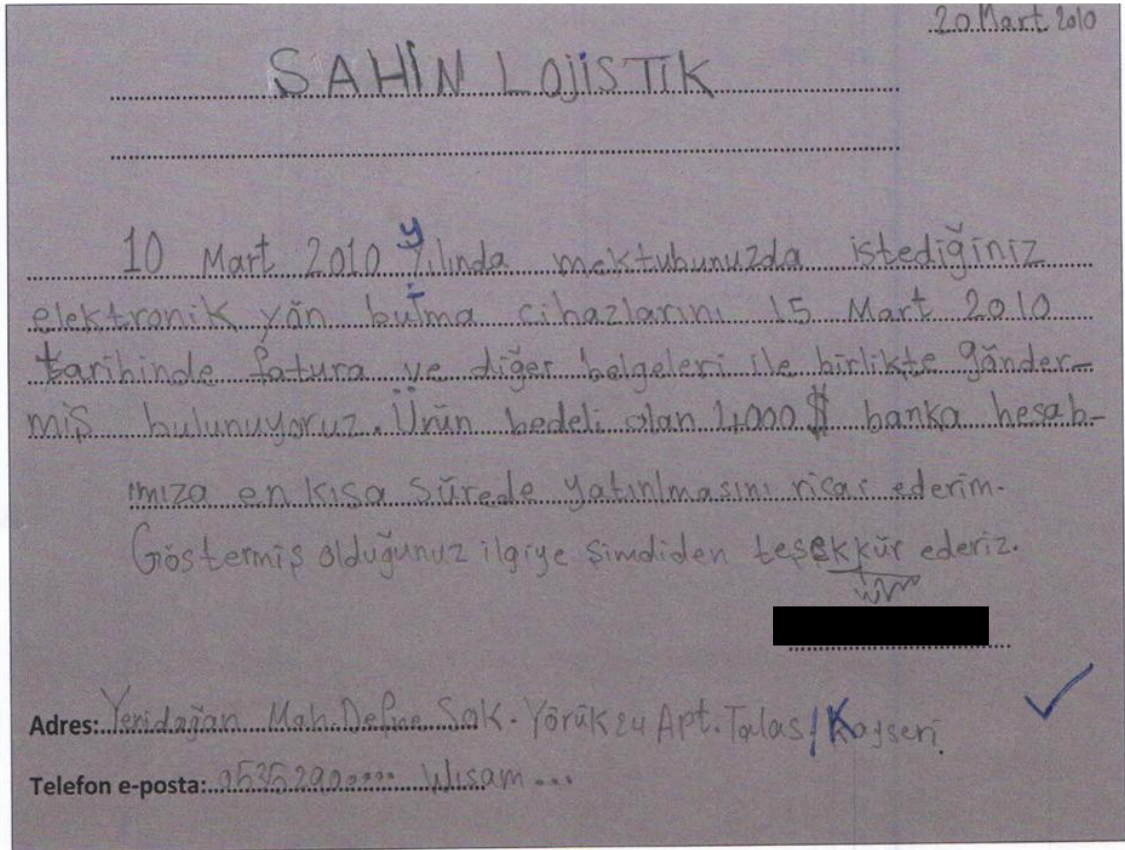 20 Mart 2010
SAHİN LOJİSTİK
10 Mart 2010 yılında mektubunuzda istediğiniz
elektronik yön bulma cihazlarını 15 Mart 2010
tarihinde fatura ve diğer belgeleri ile birlikte gönder-
miş bulunuyoruz. Ürün bedeli olan 4000 $ banka hesab-
ımıza en kısa sürede yatırılmasını ricac ederim.
Göstermiş olduğunuz ilgiye şimdiden teşekkür ederiz.
Adres: Yenidoğan Mah. Defne Sok. Yörük 24 Apt. Talas / Kayseri.
Telefon e-posta: 0535290.... Wisam...